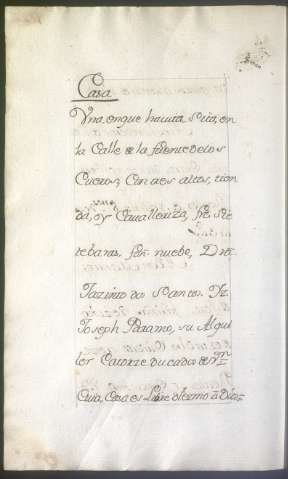 Casa
Una, en que havita su sôs, en
la Calle de la fuente de los
Cueros, Con altos, tien
da, y Cavalleriza, fre. Sie
te baras. fon. nuebe, D. n
Jazinto do Santos. Y
Joseph Paramo, su Alqui
ler Catorze ducados de V.n
Cuia, Casa es Libre del censo a Dios